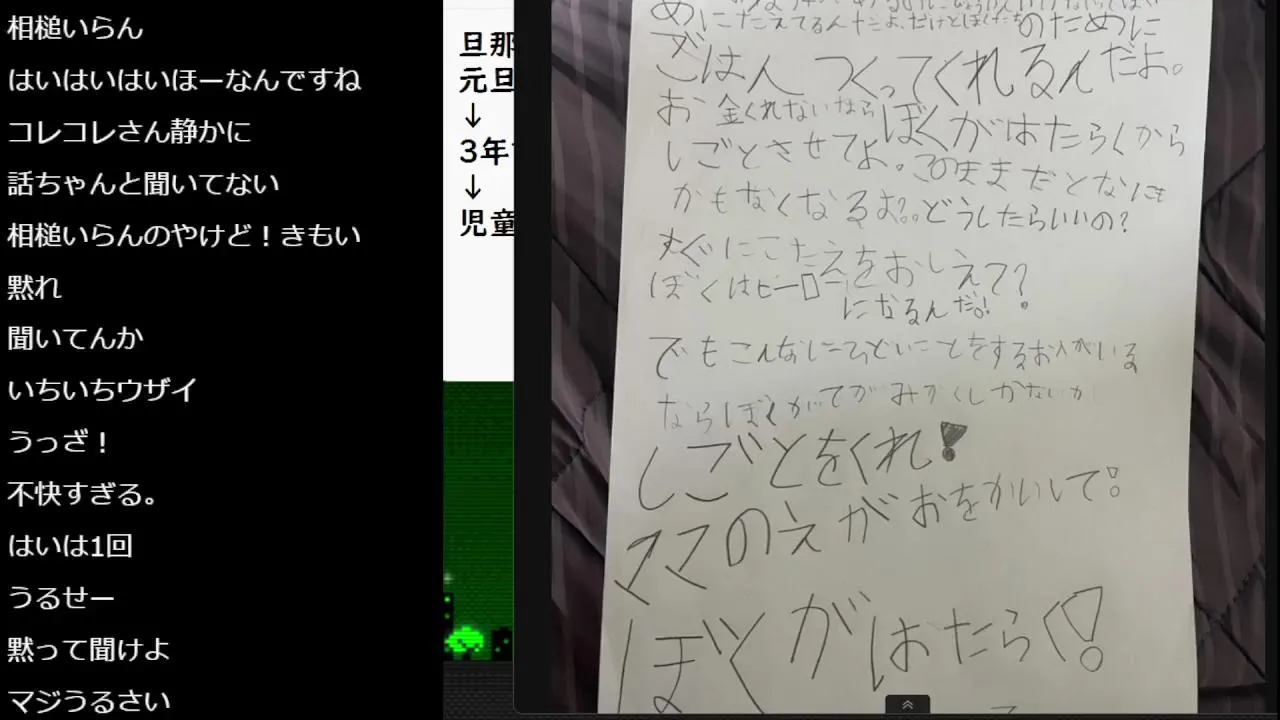 相槌いらん
はいはいはいほーなんですね
コレコレさん静かに
話ちゃんと聞いてない
相槌いらんのやけど！きもい
黙れ
聞いてんか
いちいちウザイ
うっざ！
不快すぎる。
はいは1回
うるせー
黙って聞けよ
マジうるさい
旦那
元旦
↓
3年
↓
児童
めにたえてるんだよ、だけどぼくたちのために
ごはん つくってくれるんだよ。
お金くれないならぼくがはたらくから
しごとさせてよ。このままだとなにも
かもなくなるよ?。どうしたらいいの?
すぐにこたえをおしえて?
ぼくはヒーロー
になるんだ!
でもこんなにひどいことをするお人がいる
ならぼくがてがみかくしかないか
しごとをくれ!
ママのえがおをかいして!
ぼくがはたらく!